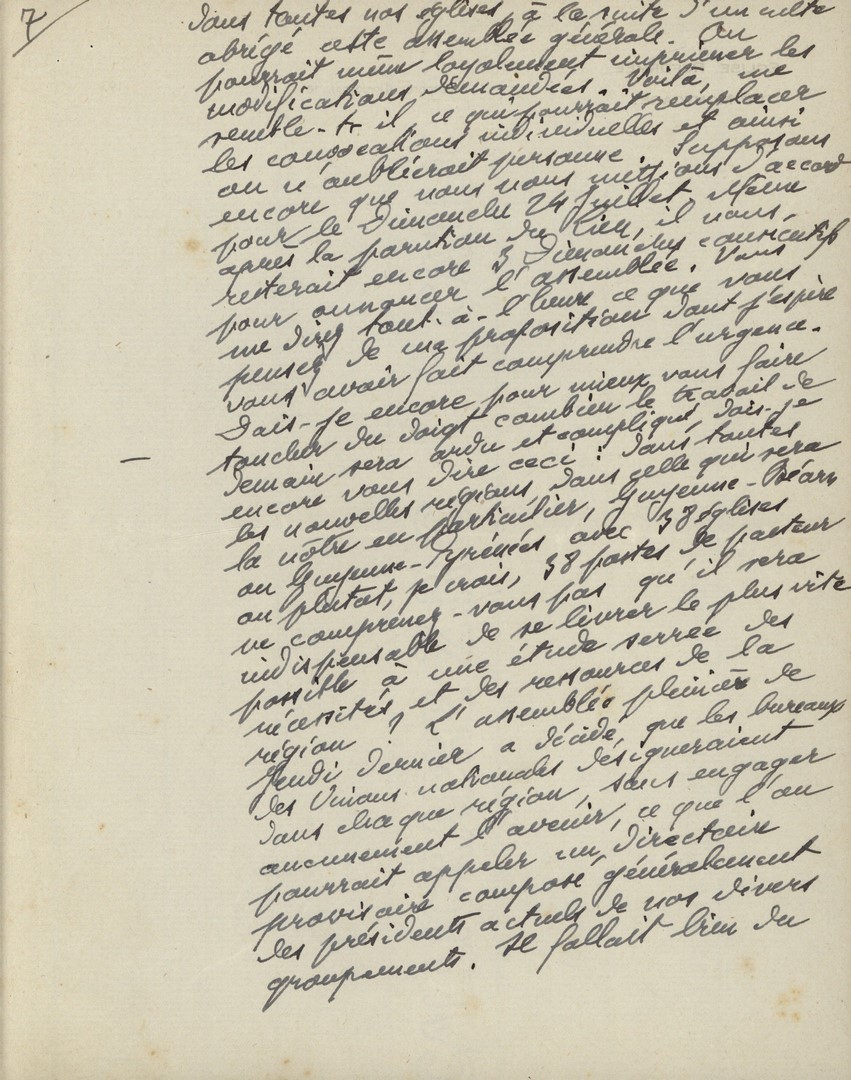 7
dans toutes nos églises, à la suite d'un culte
abrégé cette assemblée générale. On
pourrait même loyalement imprimer les
modifications demandées. Voilà, me
semble-t-il, ce qui pourrait remplacer
les convocations individuelles et ainsi
on n'oublierait personne. Supposons
encore que nous nous mettions d'accord
pour le Dimanche 24 Juillet. Même
après la parution du Lien, il nous
resterait encore 3 Dimanches consécutifs
pour annoncer l'assemblée. Vous
me direz tout-à-l'heure ce que vous
pensez de ma proposition dont j'espère
vous avoir fait comprendre l'urgence.
Dois-je encore pour mieux vous faire
toucher du doigt combien le travail de
demain sera ardu et compliqué, dois-je
encore vous dire ceci : dans toutes
les nouvelles régions, dans celle qui sera
la nôtre en particulier, Guyenne-Béarn
ou Guyenne-Pyrénées avec 38 églises
ou plutôt, je crois, 38 postes de pasteur
ne comprenez-vous pas qu'il sera
indispensable de se livrer le plus vite
possible à une étude serrée des
nécessités et des ressources de la
région ? L'assemblée plénière de
Jeudi dernier a décidé, que les bureaux
des Unions nationales désigneraient
dans chaque région, sans engager
aucunement l'avenir, ce que l'on
pourrait appeler un directoire
provisoire composé généralement
des présidents actuels de nos divers
groupements. Il fallait bien du